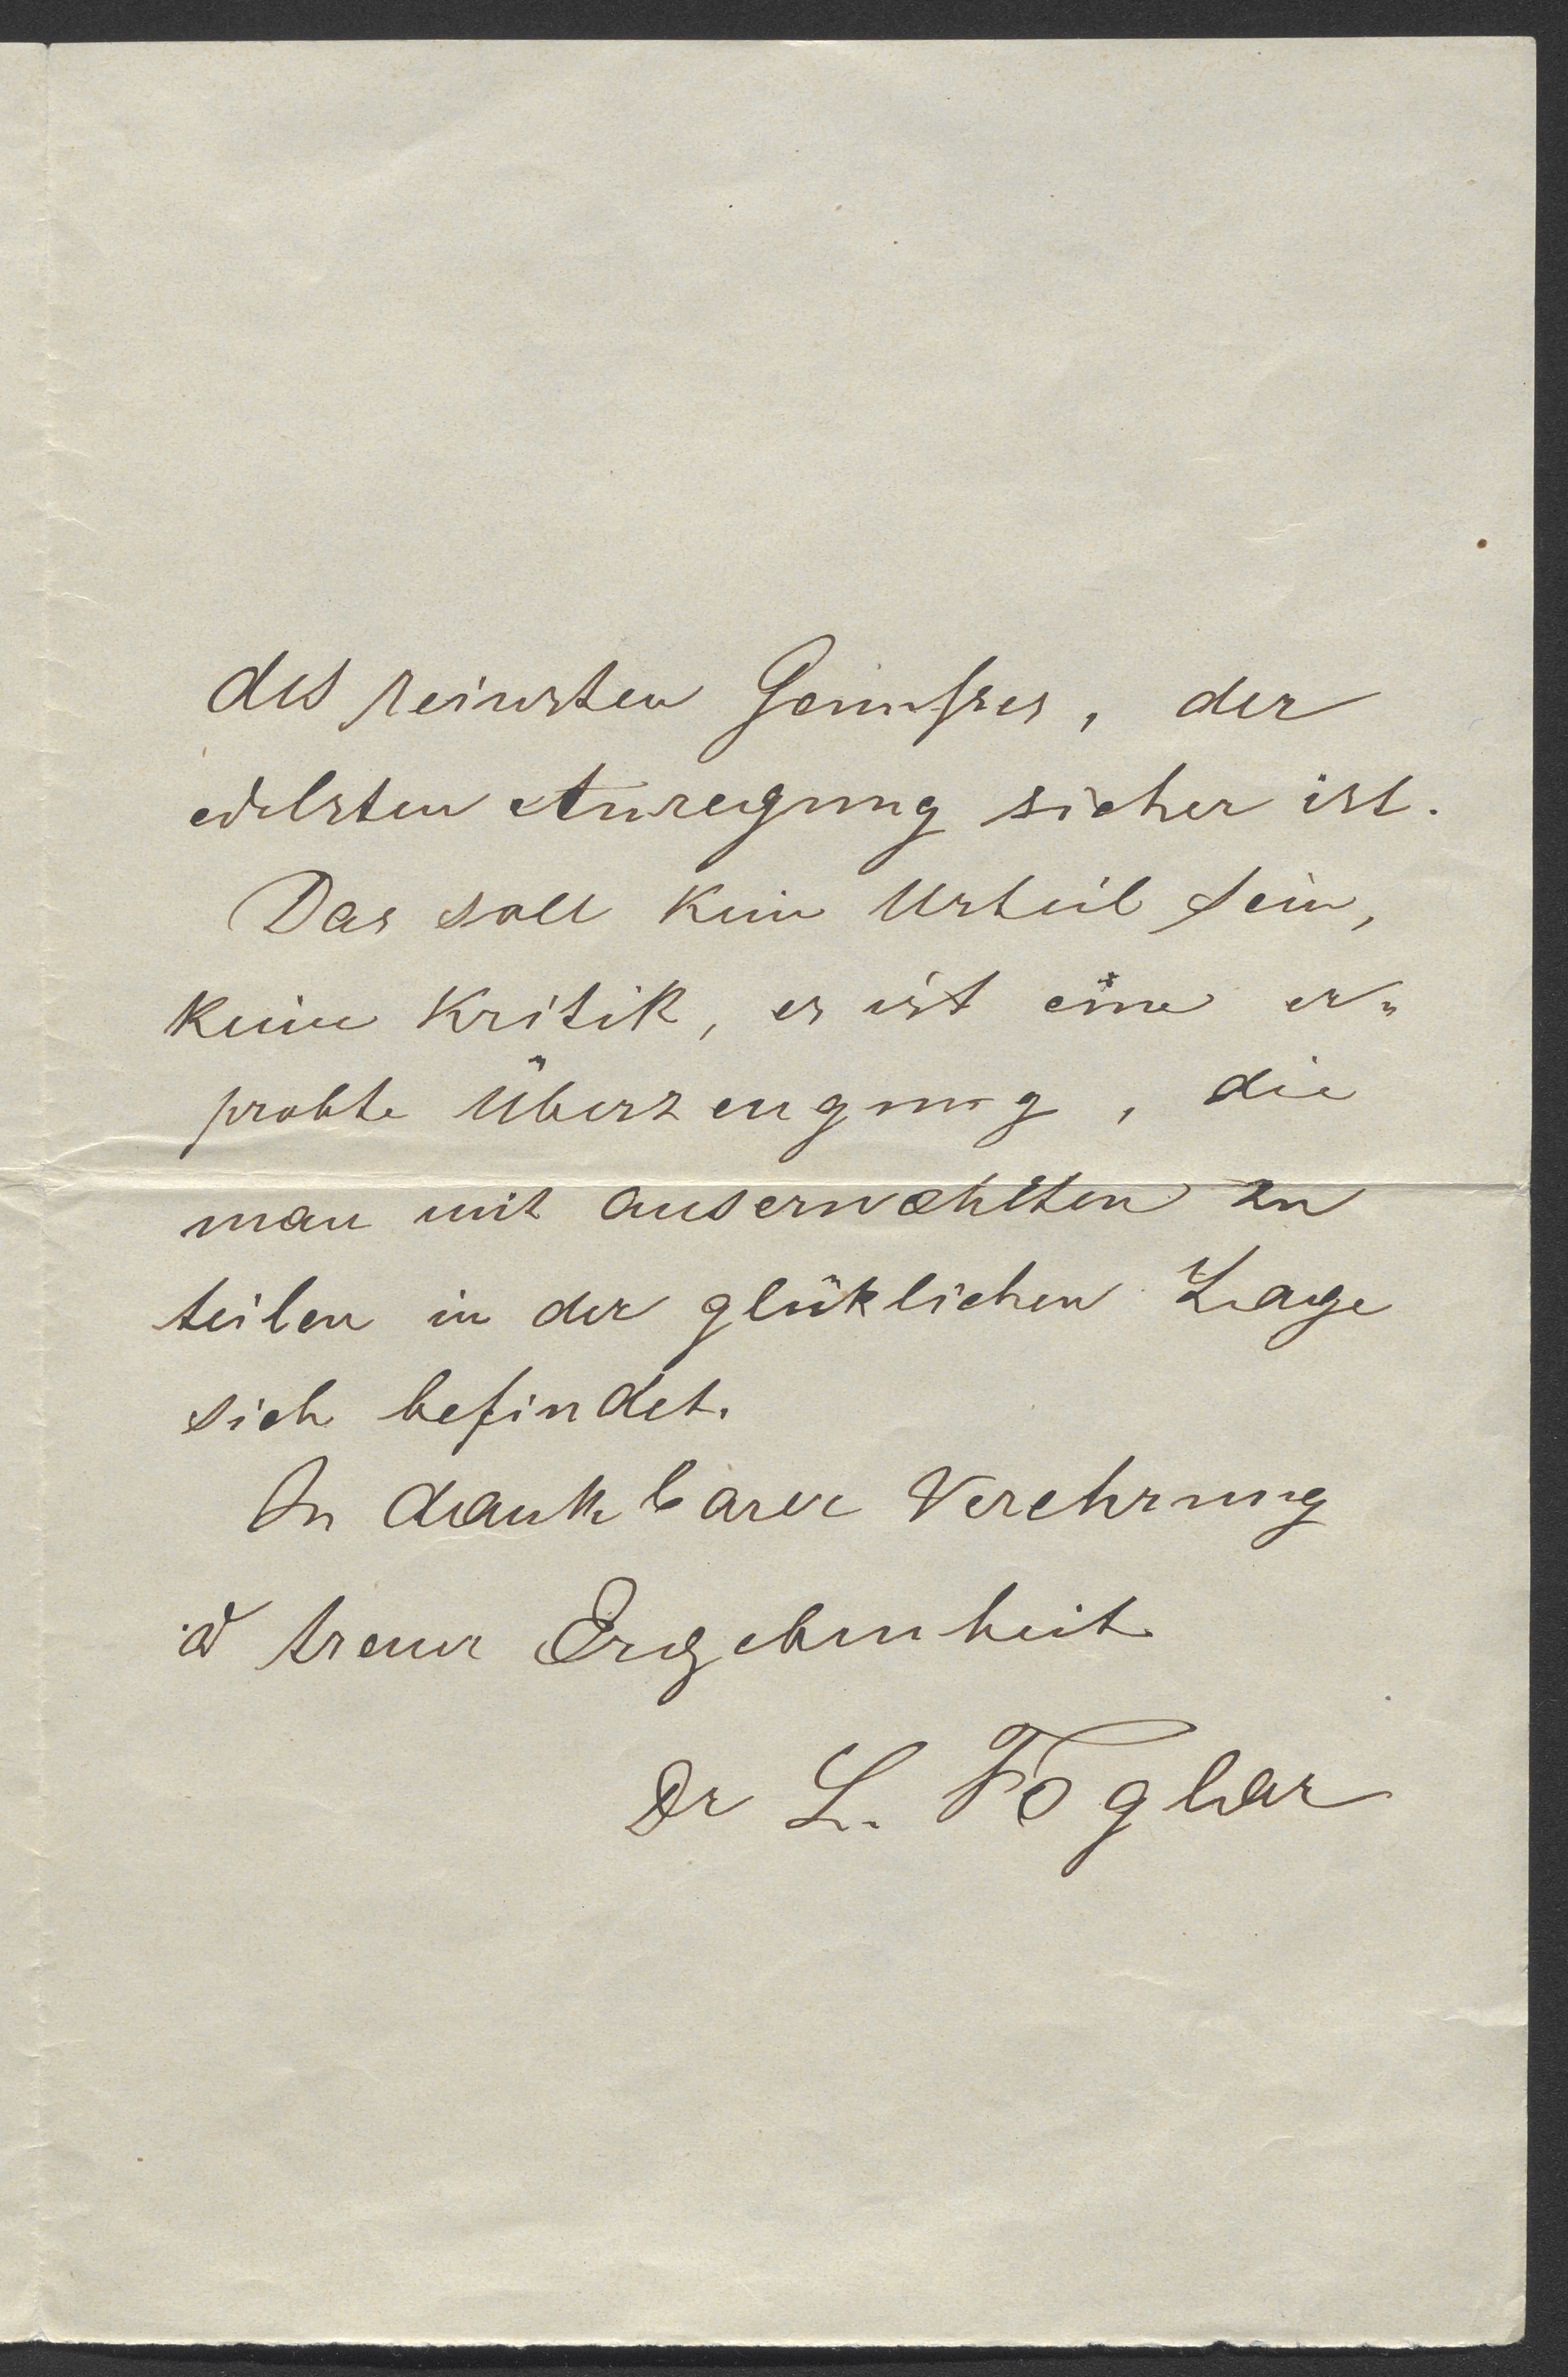 des reinsten Genusses, der
edelsten Anregung sicher ist.
Das soll kein Urteil sein,
keine Kritik, es ist eine er-
probte Überzeugung, die
man mit auserwählten zu
teilen in der glüklichen Lage
sich befindet.
In dankbarer Verehrung
treuer Ergebenheit
Dr L. Foglar